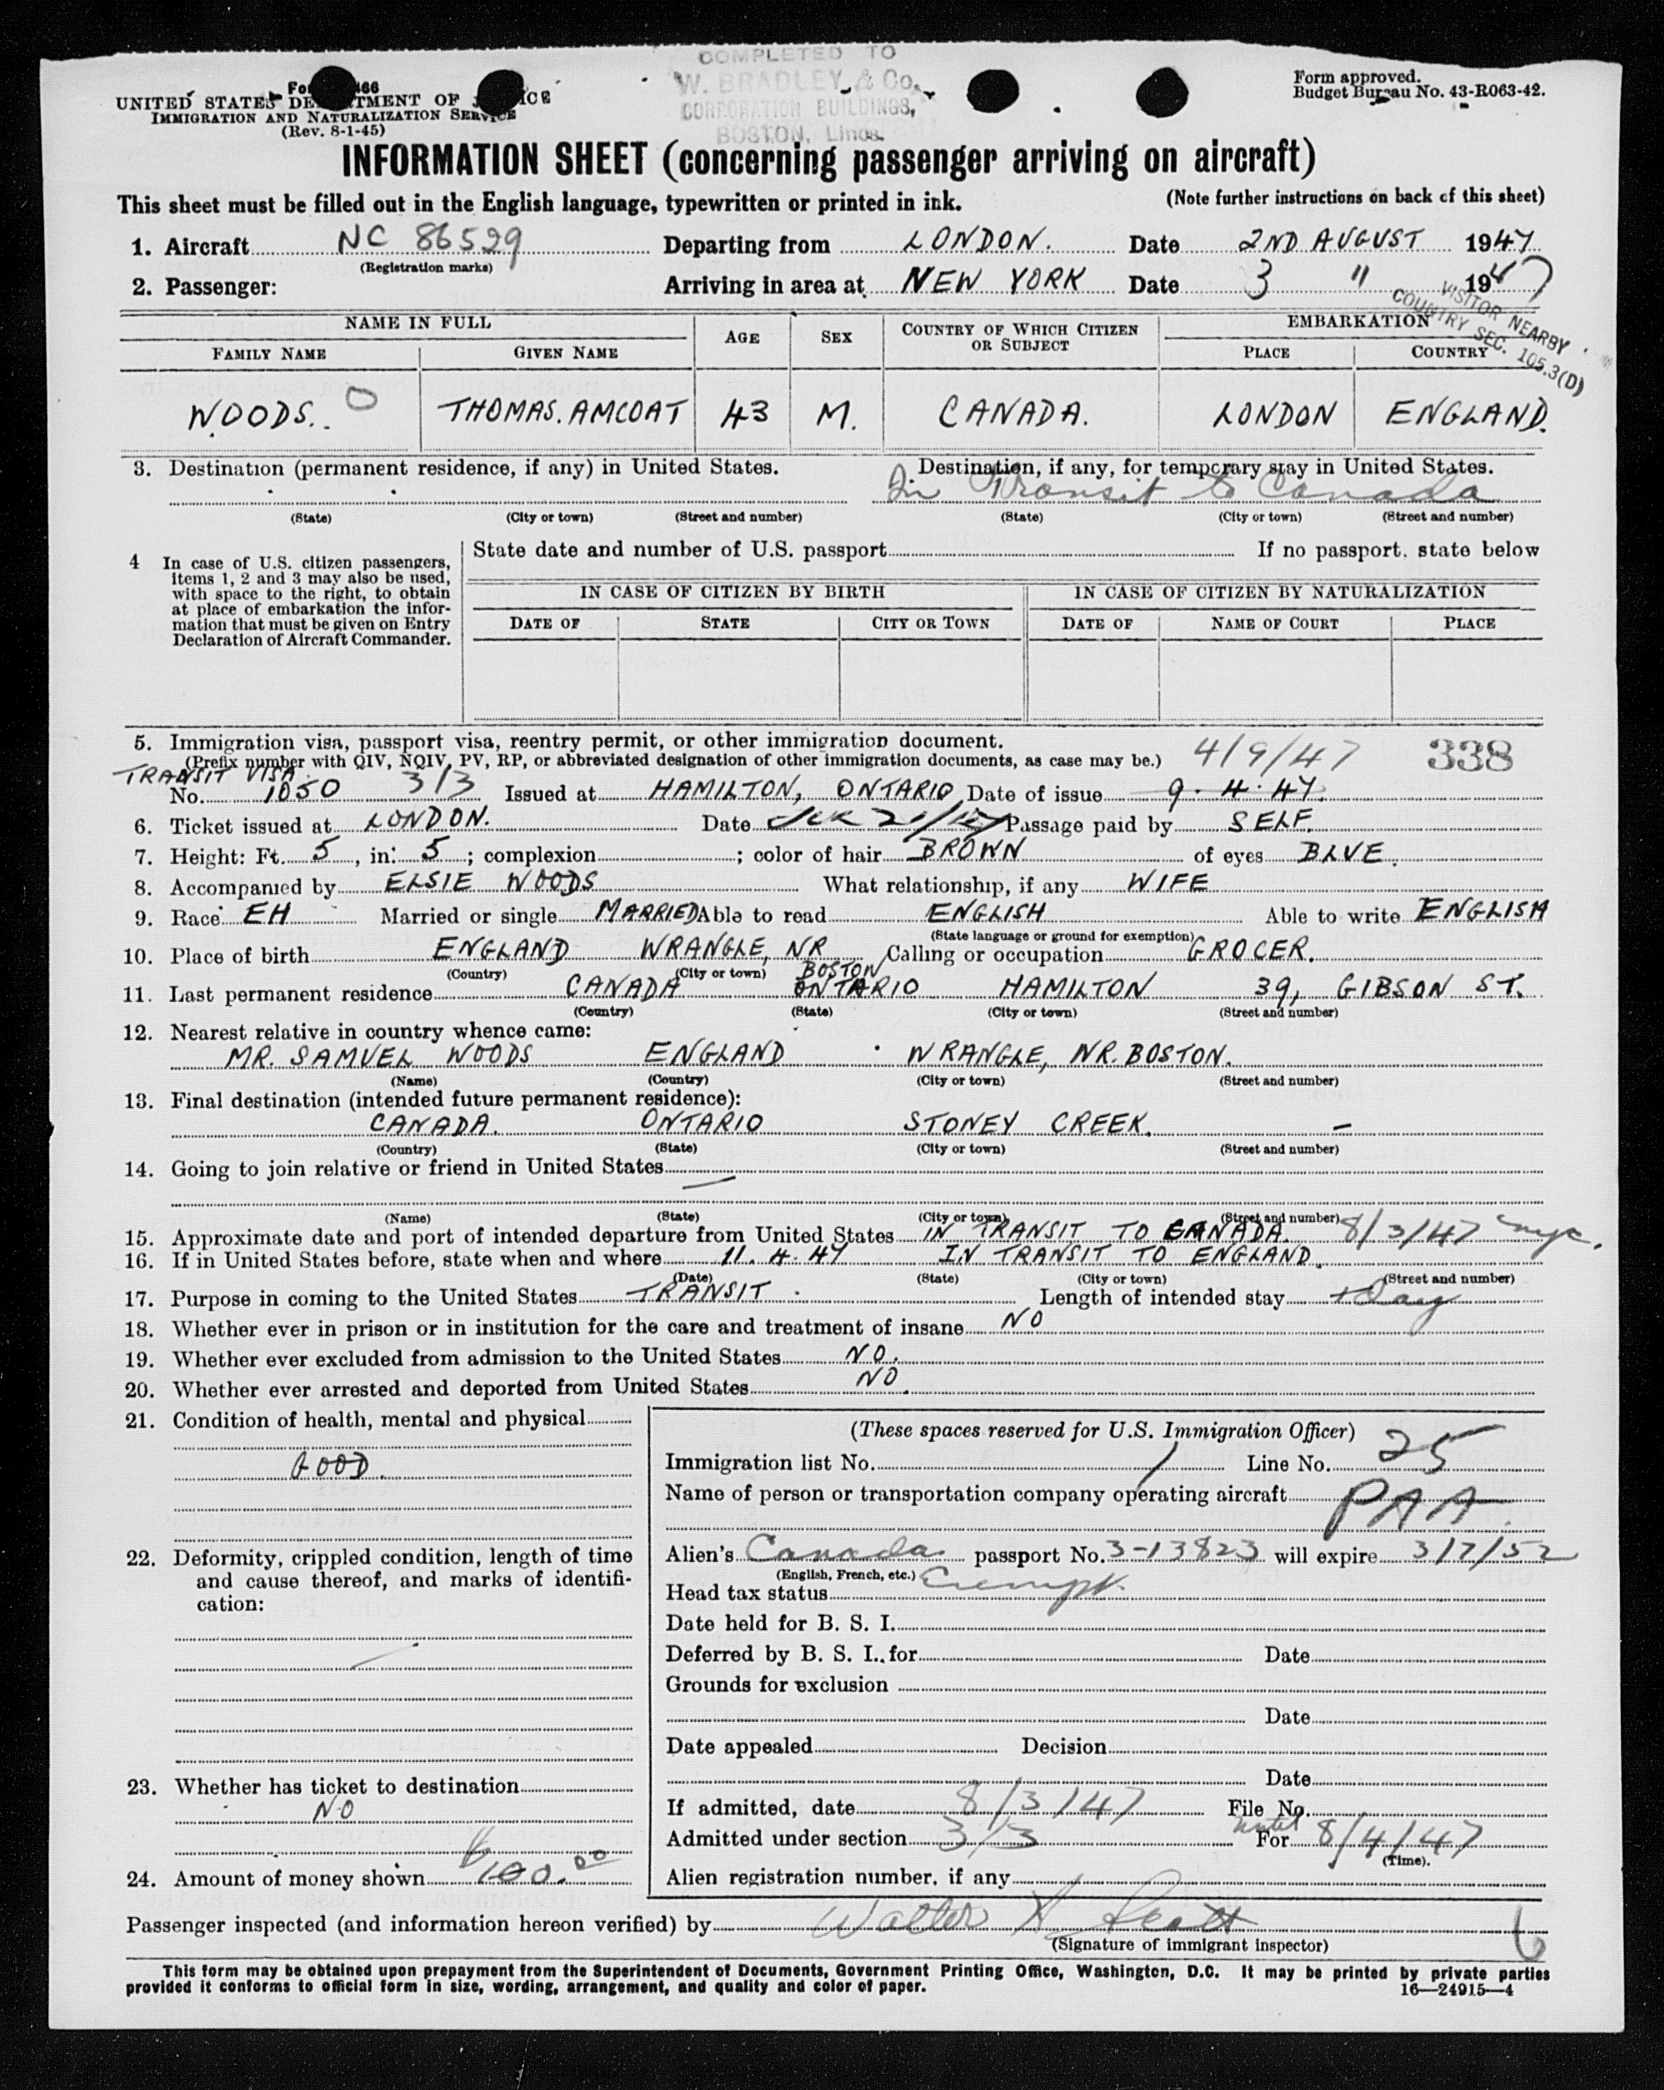 COMPLETED TO
W. BRADLEY & Co.,
CORPORATION BUILDINGS,
BOSTON, Lincs.
UNITED STATES DEPARTMENT OF JUSTICE
IMMIGRATION AND NATURALIZATION SERVICE
(Rev. 8-1-45)
Form approved.
Budget Bureau No. 43-R063-42.
INFORMATION SHEET (concerning passenger arriving on aircraft)
This sheet must be filled out in the English language, typewritten or printed in ink. (Note further instructions on back of this sheet)
1. Aircraft NC 86529 Departing from LONDON. Date 2ND AUGUST 1947
(Registration marks)
2. Passenger: Arriving in area at NEW YORK Date 3 " 1947
VISITOR NEARBY
COUNTRY SEC. 105.3(D)
NAME IN FULL AGE SEX COUNTRY OF WHICH CITIZEN OR SUBJECT EMBARKATION
FAMILY NAME GIVEN NAME PLACE COUNTRY
WOODS. O THOMAS. AMCOAT 43 M. CANADA. LONDON ENGLAND.
3. Destination (permanent residence, if any) in United States. Destination, if any, for temporary stay in United States.
In Transit to Canada
(State) (City or town) (Street and number) (State) (City or town) (Street and number)
4 In case of U.S. citizen passengers, items 1, 2 and 3 may also be used, with space to the right, to obtain at place of embarkation the information that must be given on Entry Declaration of Aircraft Commander.
State date and number of U.S. passport If no passport, state below
IN CASE OF CITIZEN BY BIRTH IN CASE OF CITIZEN BY NATURALIZATION
DATE OF STATE CITY OR TOWN DATE OF NAME OF COURT PLACE
5. Immigration visa, passport visa, reentry permit, or other immigration document.
(Prefix number with QIV, NQIV, PV, RP, or abbreviated designation of other immigration documents, as case may be.) 4/9/47 338
TRANSIT VISA
No. 1050 3/3 Issued at HAMILTON, ONTARIO Date of issue 9. 4. 47.
6. Ticket issued at LONDON. Date Passage paid by SELF.
7. Height: Ft. 5, in. 5; complexion ; color of hair BROWN of eyes BLUE.
8. Accompanied by ELSIE WOODS What relationship, if any WIFE
9. Race EH Married or single MARRIED Able to read ENGLISH Able to write ENGLISH
(State language or ground for exemption)
10. Place of birth ENGLAND WRANGLE, NR BOSTON Calling or occupation GROCER.
(Country) (City or town)
11. Last permanent residence CANADA ONTARIO HAMILTON 39, GIBSON ST.
(Country) (State) (City or town) (Street and number)
12. Nearest relative in country whence came:
MR. SAMUEL WOODS ENGLAND WRANGLE, NR. BOSTON.
(Name) (Country) (City or town) (Street and number)
13. Final destination (intended future permanent residence):
CANADA. ONTARIO STONEY CREEK. —
(Country) (State) (City or town) (Street and number)
14. Going to join relative or friend in United States
—
(Name) (State) (City or town) (Street and number)
15. Approximate date and port of intended departure from United States IN TRANSIT TO CANADA. 8/3/47 nyc.
16. If in United States before, state when and where 11. 4. 47 IN TRANSIT TO ENGLAND.
(Date) (State) (City or town) (Street and number)
17. Purpose in coming to the United States TRANSIT Length of intended stay 1 Day
18. Whether ever in prison or in institution for the care and treatment of insane NO
19. Whether ever excluded from admission to the United States NO.
20. Whether ever arrested and deported from United States NO.
21. Condition of health, mental and physical
GOOD.
22. Deformity, crippled condition, length of time and cause thereof, and marks of identification:
—
23. Whether has ticket to destination
NO
24. Amount of money shown $100.00
(These spaces reserved for U.S. Immigration Officer)
Immigration list No. 1 Line No. 25
Name of person or transportation company operating aircraft PAA
Alien's Canada passport No. 3-13823 will expire 3/7/52
(English, French, etc.)
Head tax status Exempt
Date held for B. S. I.
Deferred by B. S. I. for Date
Grounds for exclusion
Date
Date appealed Decision
Date
If admitted, date 8/3/47 File No.
Admitted under section 3/3 until For 8/4/47
(Time).
Alien registration number, if any
Passenger inspected (and information hereon verified) by Walter A Scott 6
(Signature of immigrant inspector)
This form may be obtained upon prepayment from the Superintendent of Documents, Government Printing Office, Washington, D.C. It may be printed by private parties
provided it conforms to official form in size, wording, arrangement, and quality and color of paper. 16—24915—4